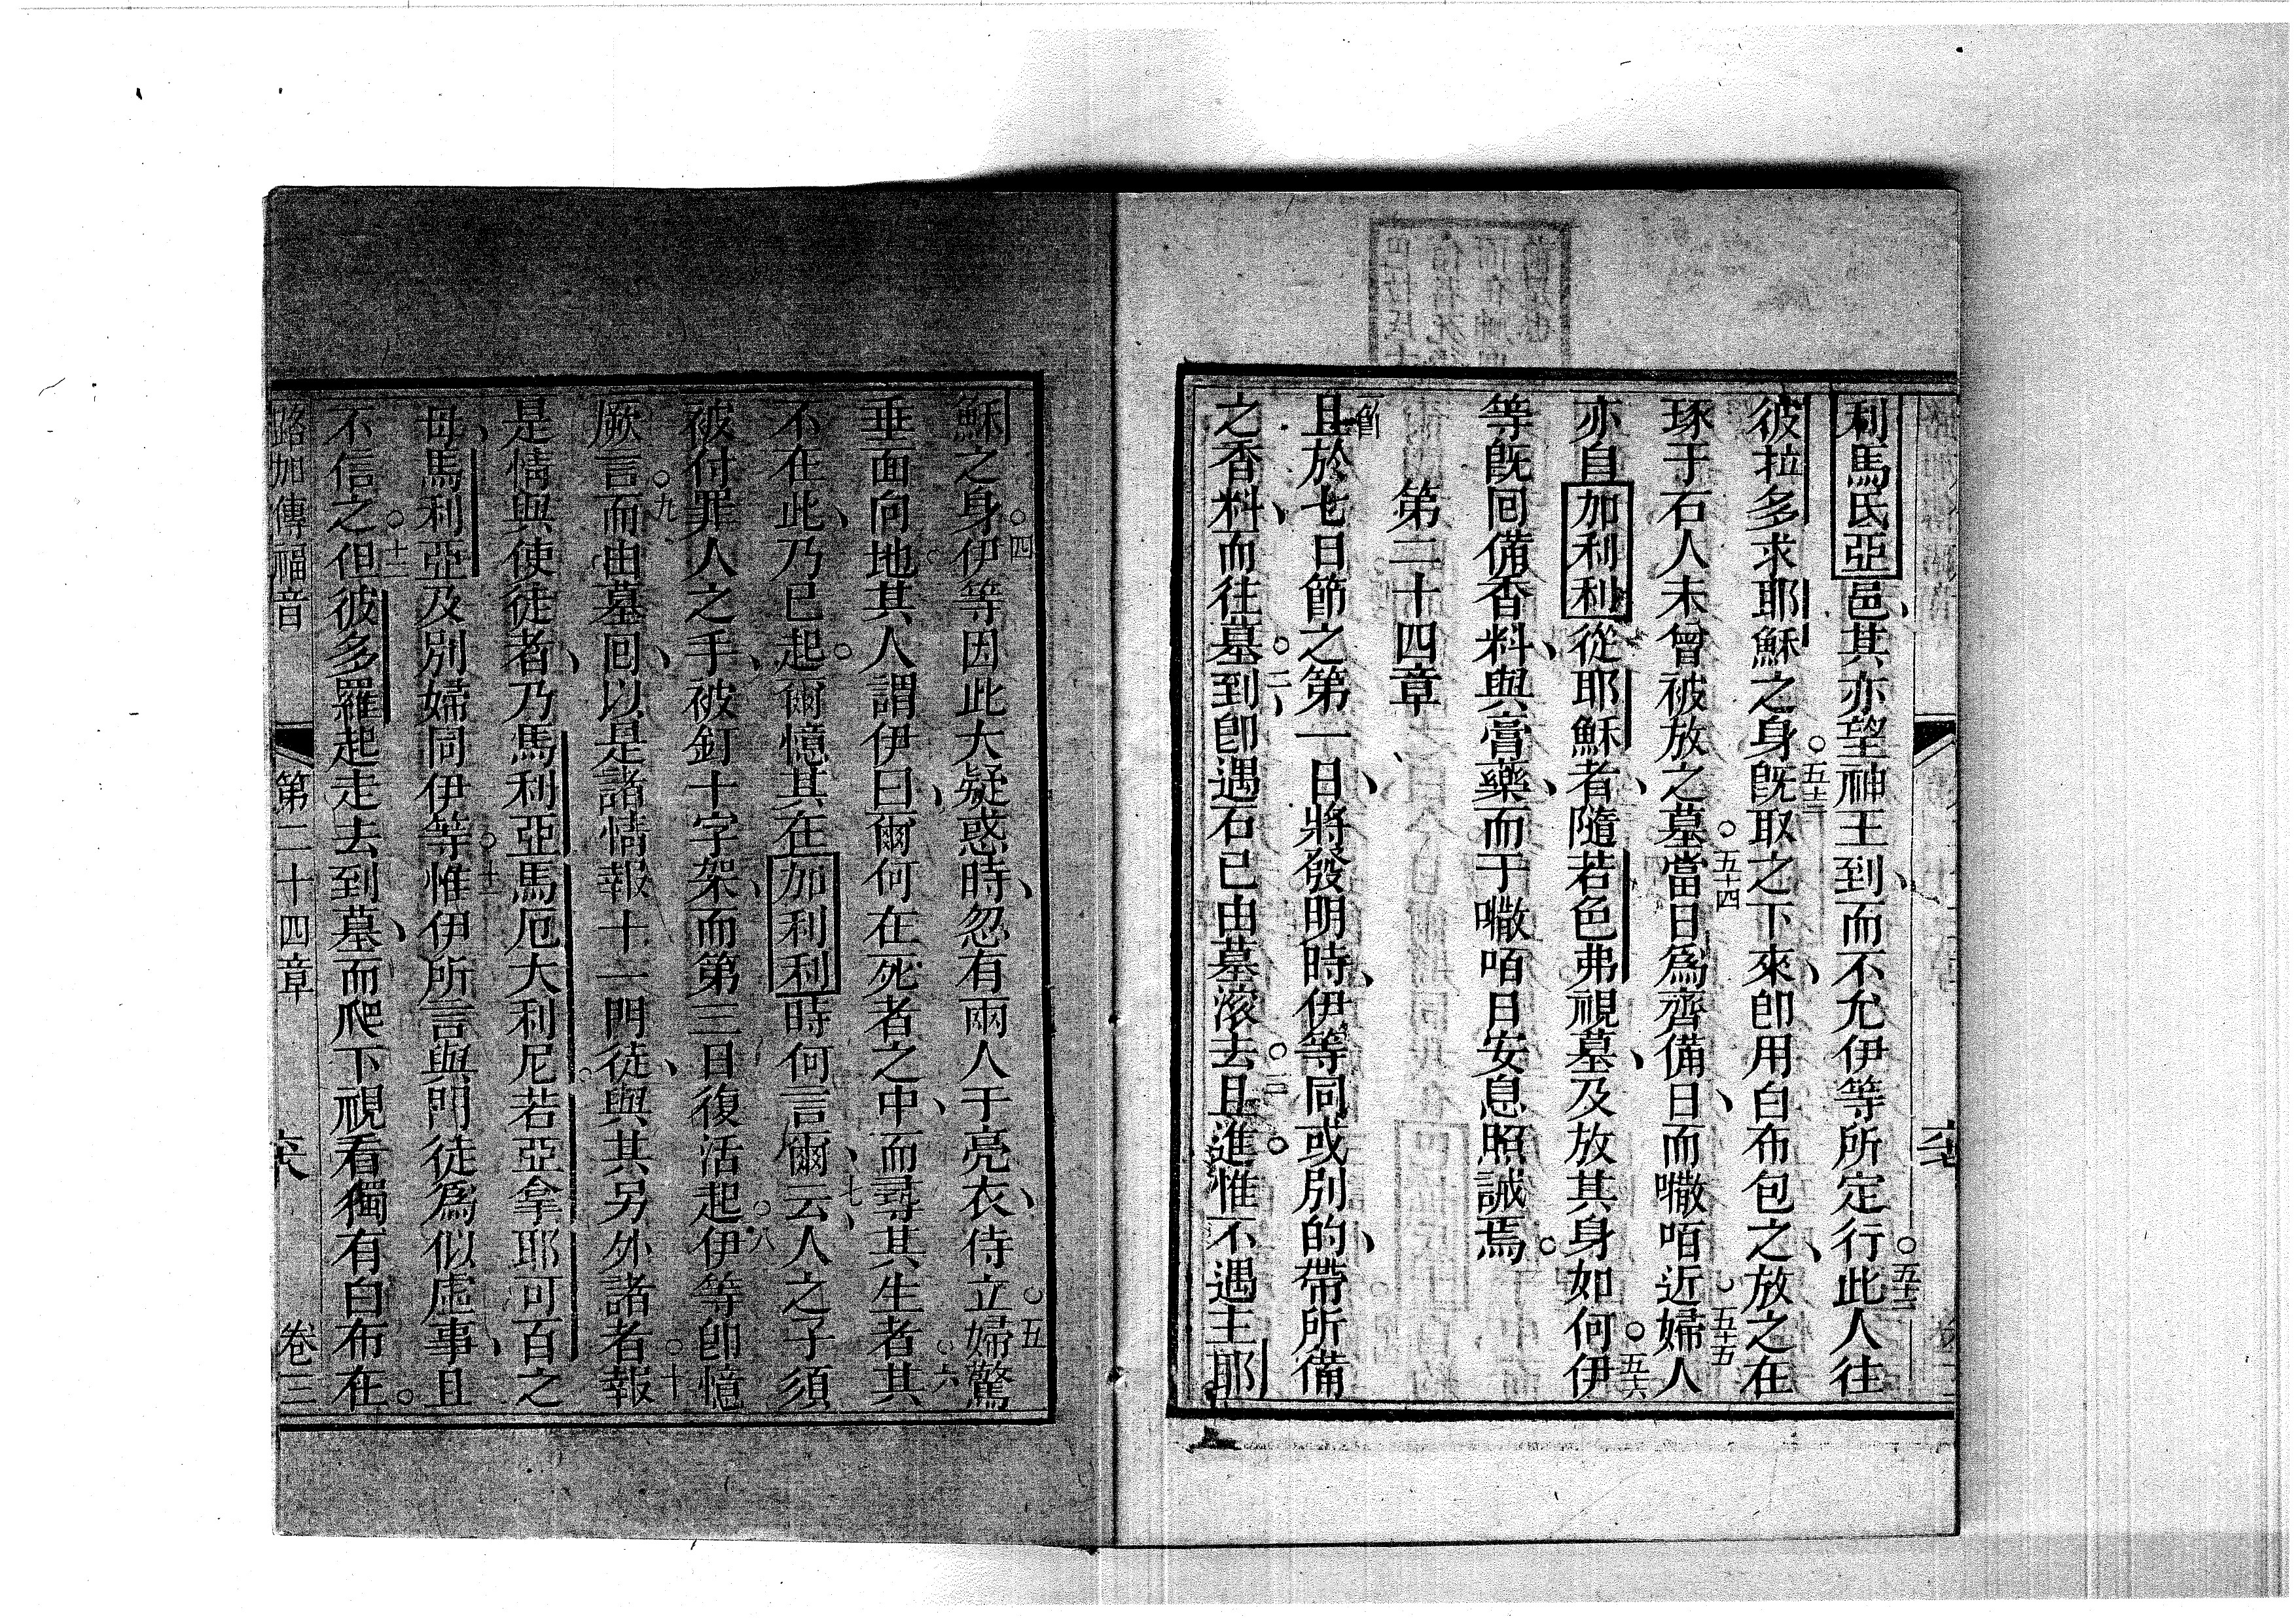 利馬氏亞邑、其亦望神王到、而不允伊等所定行。五十二此人往
彼拉多求耶穌之身。五十三既取之下來、卽用白布包之、放之在
琢于石人未曾被放之墓。五十四當日爲齊備日、而𠹌咟近。五十五婦人
亦自加利利從耶穌者、隨若色弗視墓、及放其身如何。五十六伊
等旣囘備香料、與膏藥、而于𠹌咟日安息照誡焉。
第二十四章
一節且於七日節之第一日、將發明時、伊等同或別的、帶所備
之香料、而往墓。二到、卽遇石已由墓滚去。三且進。惟不遇主耶
穌之身。四伊等因此大疑惑時、忽有兩人于亮衣、侍立。五婦驚
垂面向地。其人謂伊曰、爾何在死者之中、而尋其生者。六其
不在此、乃已起。爾憶其在加利利時、何言爾、七云、人之子須
被付罪人之手、被釘十字架、而第三日復活起。八伊等卽憶
厥言。九而由墓囘、以是諸情報十一門徒、與其另外諸者。十報
是情與使徒者、乃馬利亞馬厄大利尼若亞拿耶可百之
母、馬利亞及別婦同伊等。十一惟伊所言與門徒爲似虛事、且
不信之。十二但彼多羅起走去到墓、而爬下視看獨有白布在。
路加傳福音 第二十四章 卷三